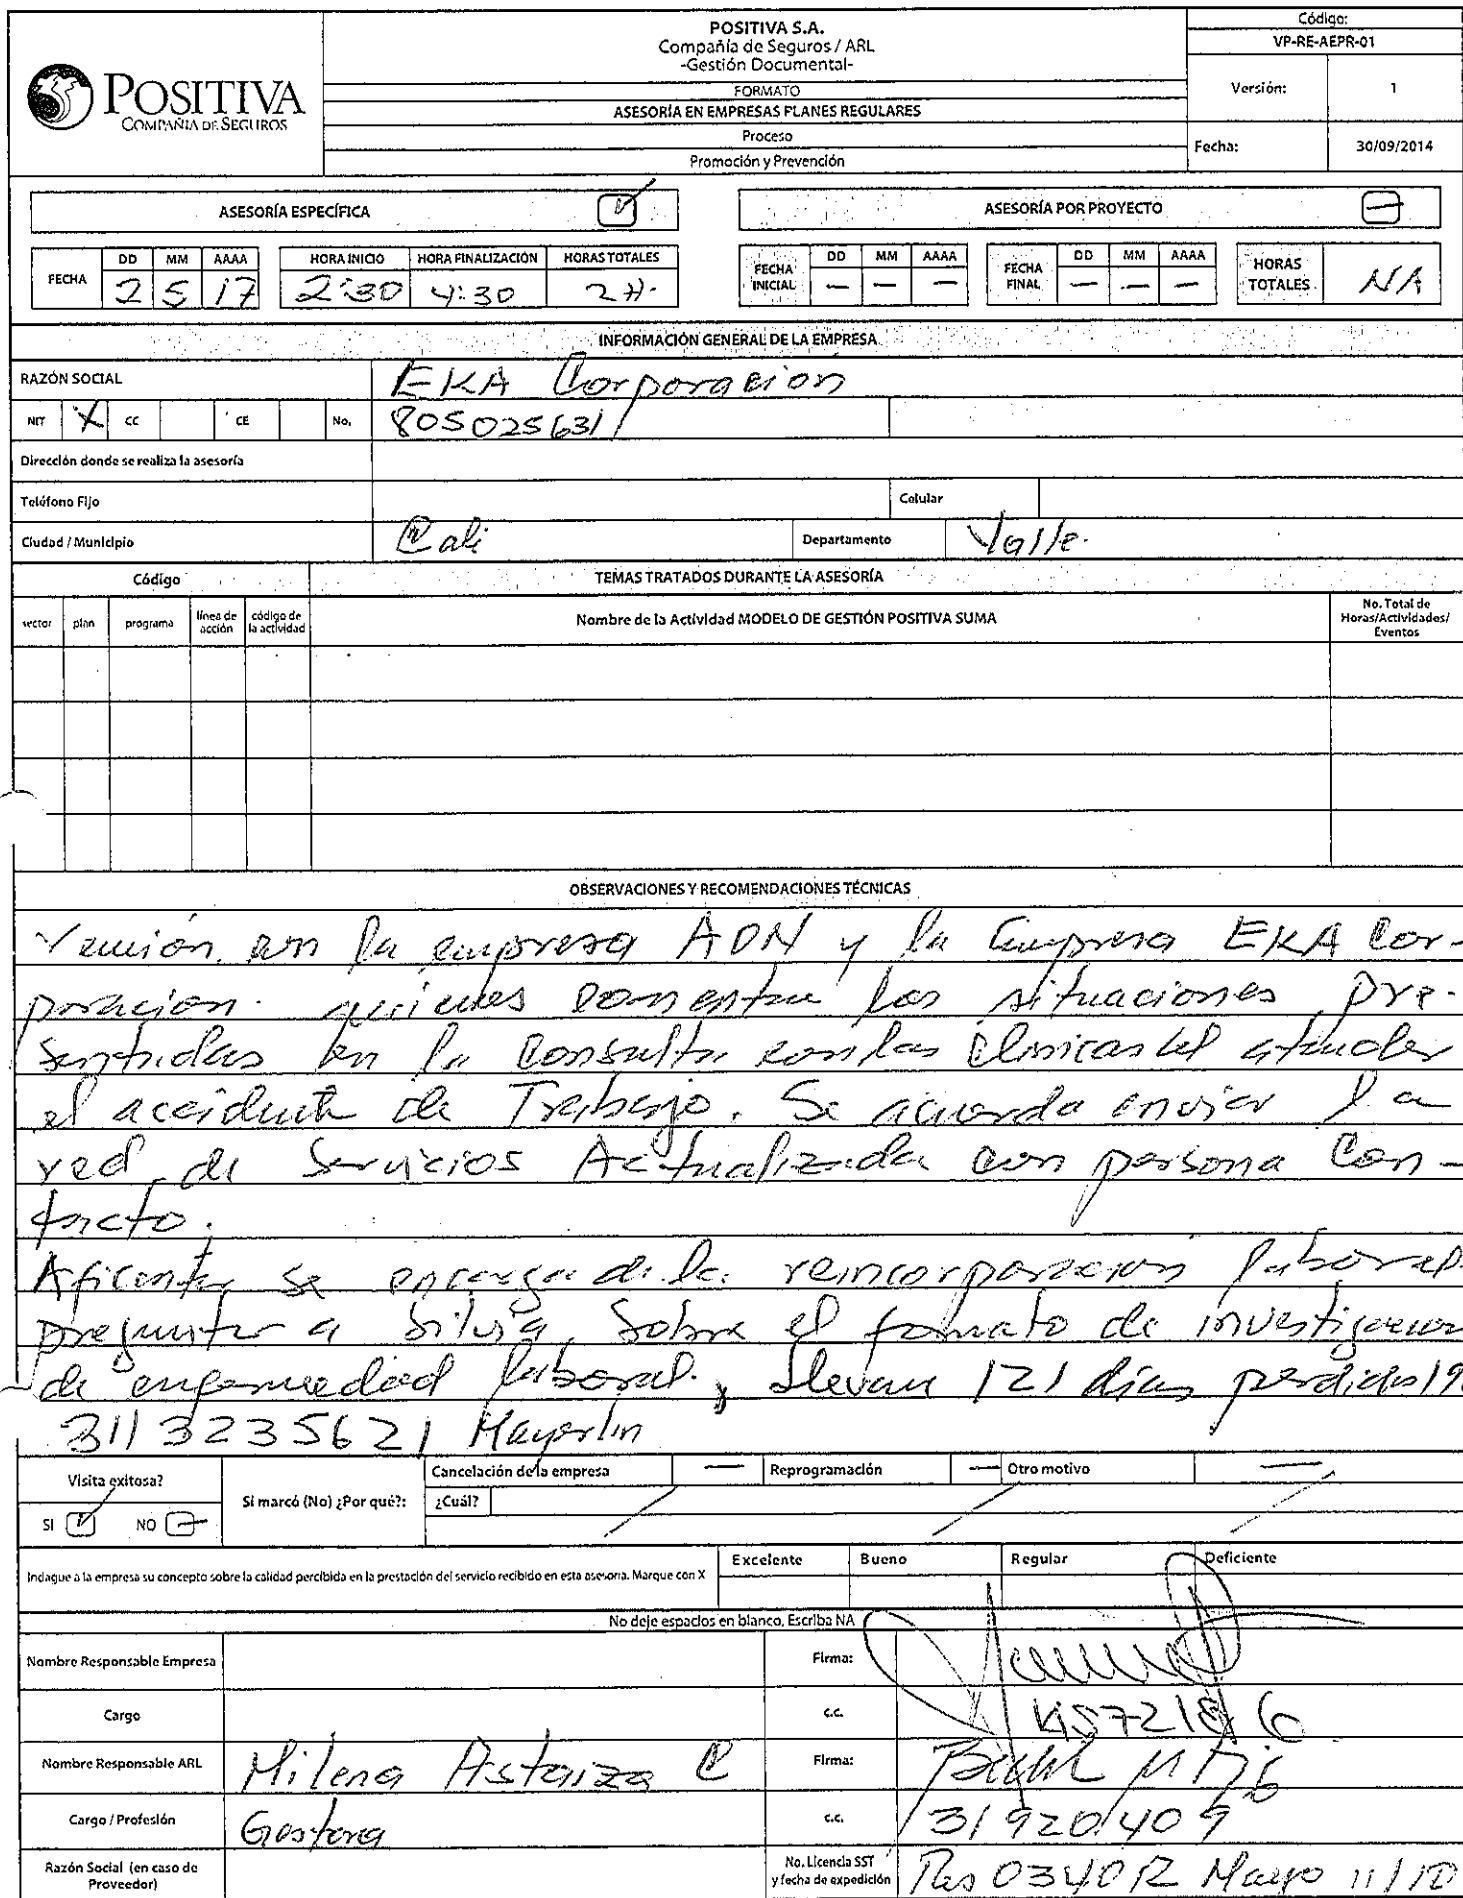 POSITIVA
COMPAÑÍA DE SEGUROS
POSITIVA S.A.
Compañía de Seguros / ARL
-Gestión Documental-
FORMATO
ASESORÍA EN EMPRESAS PLANES REGULARES
Proceso
Promoción y Prevención
Código:
VP-RE-AEPR-01
Versión: 1
Fecha: 30/09/2014
ASESORÍA ESPECÍFICA
ASESORÍA POR PROYECTO
FECHA DD MM AAAA HORA INICIO HORA FINALIZACIÓN HORAS TOTALES
2 5 17 2:30 4:30 2 H.
FECHA INICIAL DD MM AAAA FECHA FINAL DD MM AAAA HORAS TOTALES
— — — — — — NA
INFORMACIÓN GENERAL DE LA EMPRESA
RAZÓN SOCIAL EKA Corporacion
NIT X CC CE No. 805025631
Dirección donde se realiza la asesoría
Teléfono Fijo Celular
Ciudad / Municipio Cali Departamento Valle.
Código TEMAS TRATADOS DURANTE LA ASESORÍA
sector plan programa línea de acción código de la actividad Nombre de la Actividad MODELO DE GESTIÓN POSITIVA SUMA No. Total de Horas/Actividades/Eventos
OBSERVACIONES Y RECOMENDACIONES TÉCNICAS
reunión con la empresa ADN y la Empresa EKA Cor-
poracion. quienes comentan las situaciones pre-
sentadas en la consulta con las clinicas al atender
el accidente de Trabajo. Se acuerda enviar la
red de Servicios Actualizada con persona Con-
tacto.
se encarga de la reincorporacion laboral.
preguntar a Silvia, Sobre el formato de investigacion
de enfermedad laboral., llevan 121 días perdidos
311 3235621 Mayerlin
Visita exitosa?
SI NO
Si marcó (No) ¿Por qué?:
Cancelación de la empresa — Reprogramación — Otro motivo —
¿Cuál?
Indague a la empresa su concepto sobre la calidad percibida en la prestación del servicio recibido en esta asesoria. Marque con X
Excelente Bueno Regular Deficiente
No deje espacios en blanco, Escriba NA
Nombre Responsable Empresa Firma:
Cargo c.c.
Nombre Responsable ARL Milena Astaiza C Firma:
Cargo / Profesión Gestora c.c. 31920409
Razón Social (en caso de Proveedor) No. Licencia SST y fecha de expedición Mayo 11/10